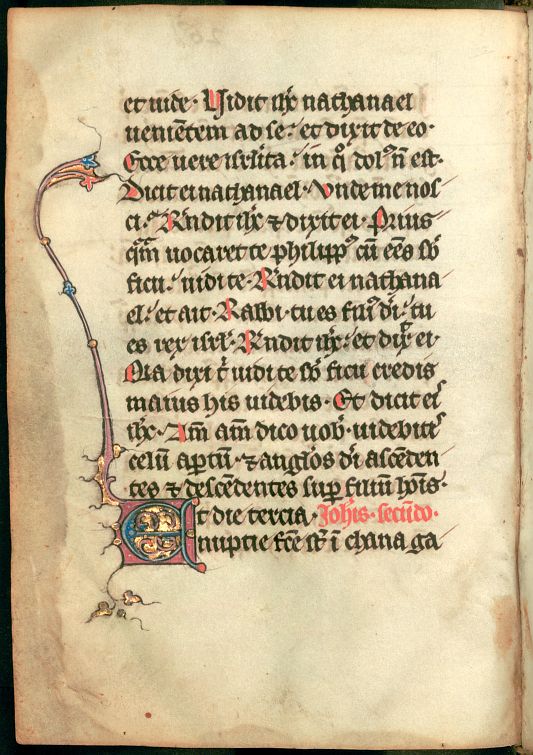 et uide· Uidit ihc nathanael
uenietem ad se: et dixit de eo·
Ecce uere isrlita: in q dol n est·
Dicit ei nathanael· Unde me nos
ti: Rndit ihc ⁊ dixit ei· Prius
qm uocaret te philipp cu ees sb
ficu: uidi te· Rndit ei nathana
el: et ait· Rabbi· tu es fili di: tu
es rex isrl· Rndit ihc: et dix ei·
Qia dixi t uidi te sb ficu credis
maius his uidebis· Et dicit ei
ihc· Am am dico uob· uidebitis
celu aptu· ⁊ anglos di asceden
tes ⁊ descedentes sup filiu hois·
Et die tercia· Johis· secundo·
nuptie fce st i chana ga